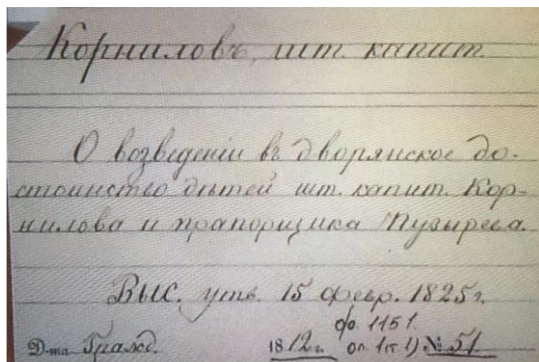 Корниловъ, шт. капит.
О возведеніи въ дворянское до-
стоинство дѣтей шт. капит. Кор-
нилова и прапорщика Пузырева.
Выс. утв. 15 февр. 1825 г.
ф. 1151
Д-та Гражд. 1812 г. оп. 1 (т. 1) № 51.